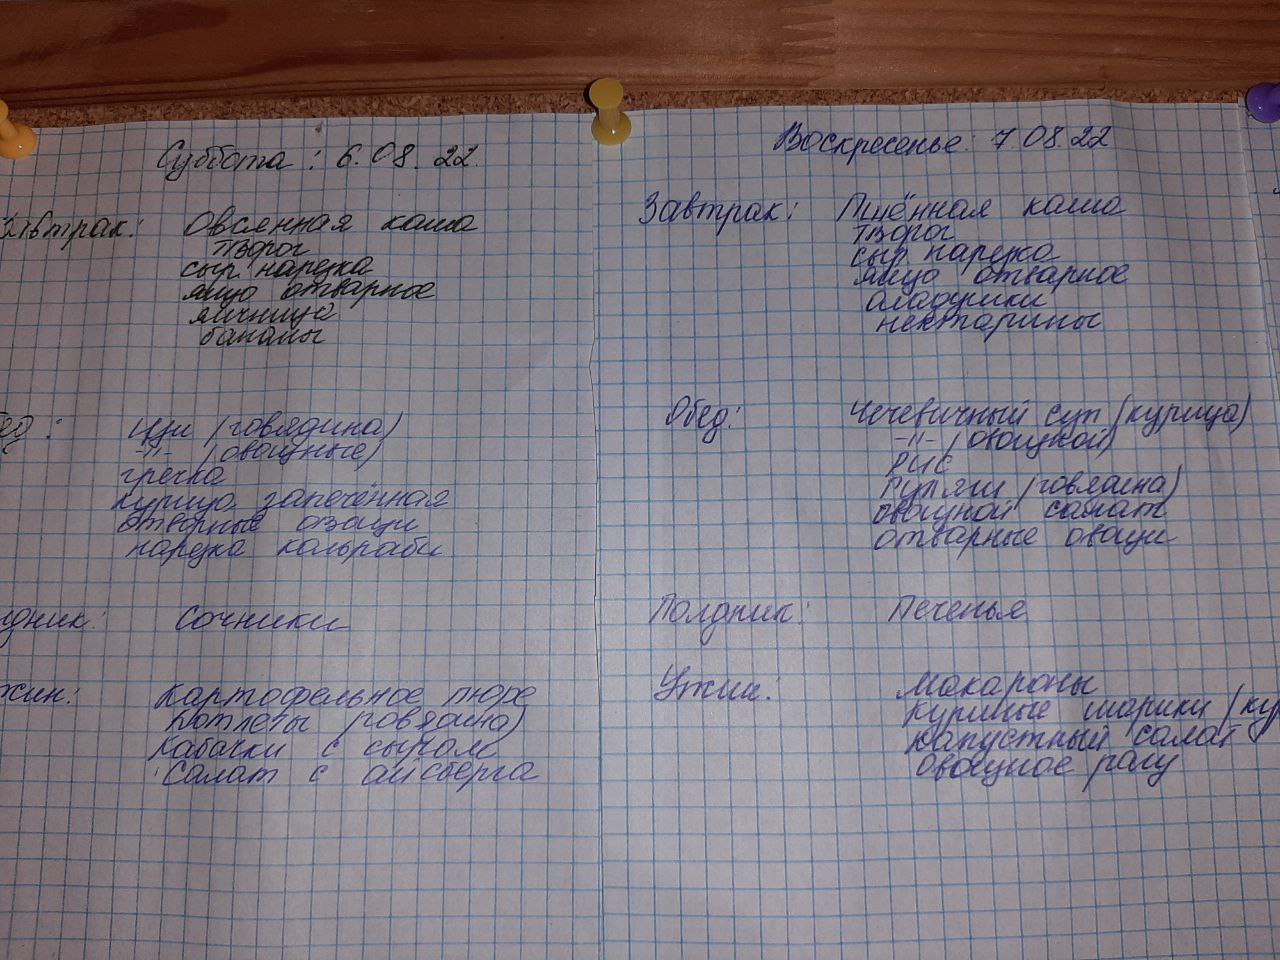 Суббота : 6.08.22.
Завтрак: Овсянная каша
творог
сыр нарезка
яйцо отварное
яичница
бананы
ед : Щи (говядина)
-"- (овощные)
гречка
курица запечённая
отварные овощи
нарезка кольраби
лдник: Сочники
жин: Картофельное пюре
Котлеты (говядина)
Кабачки с сыром
Салат с айсберга
Воскресенье: 7.08.22
Завтрак: Пшённая каша
творог
сыр нарезка
яйцо отварное
оладушки
нектарины
Обед: Чечевичный суп (курица)
-"- (овощной)
рис
Гуляш (говядина)
овощной салат
отварные овощи
Полдник: Печенья
Ужин: Макароны
Куриные шарики (ку
Капустный салат
Овощное рагу